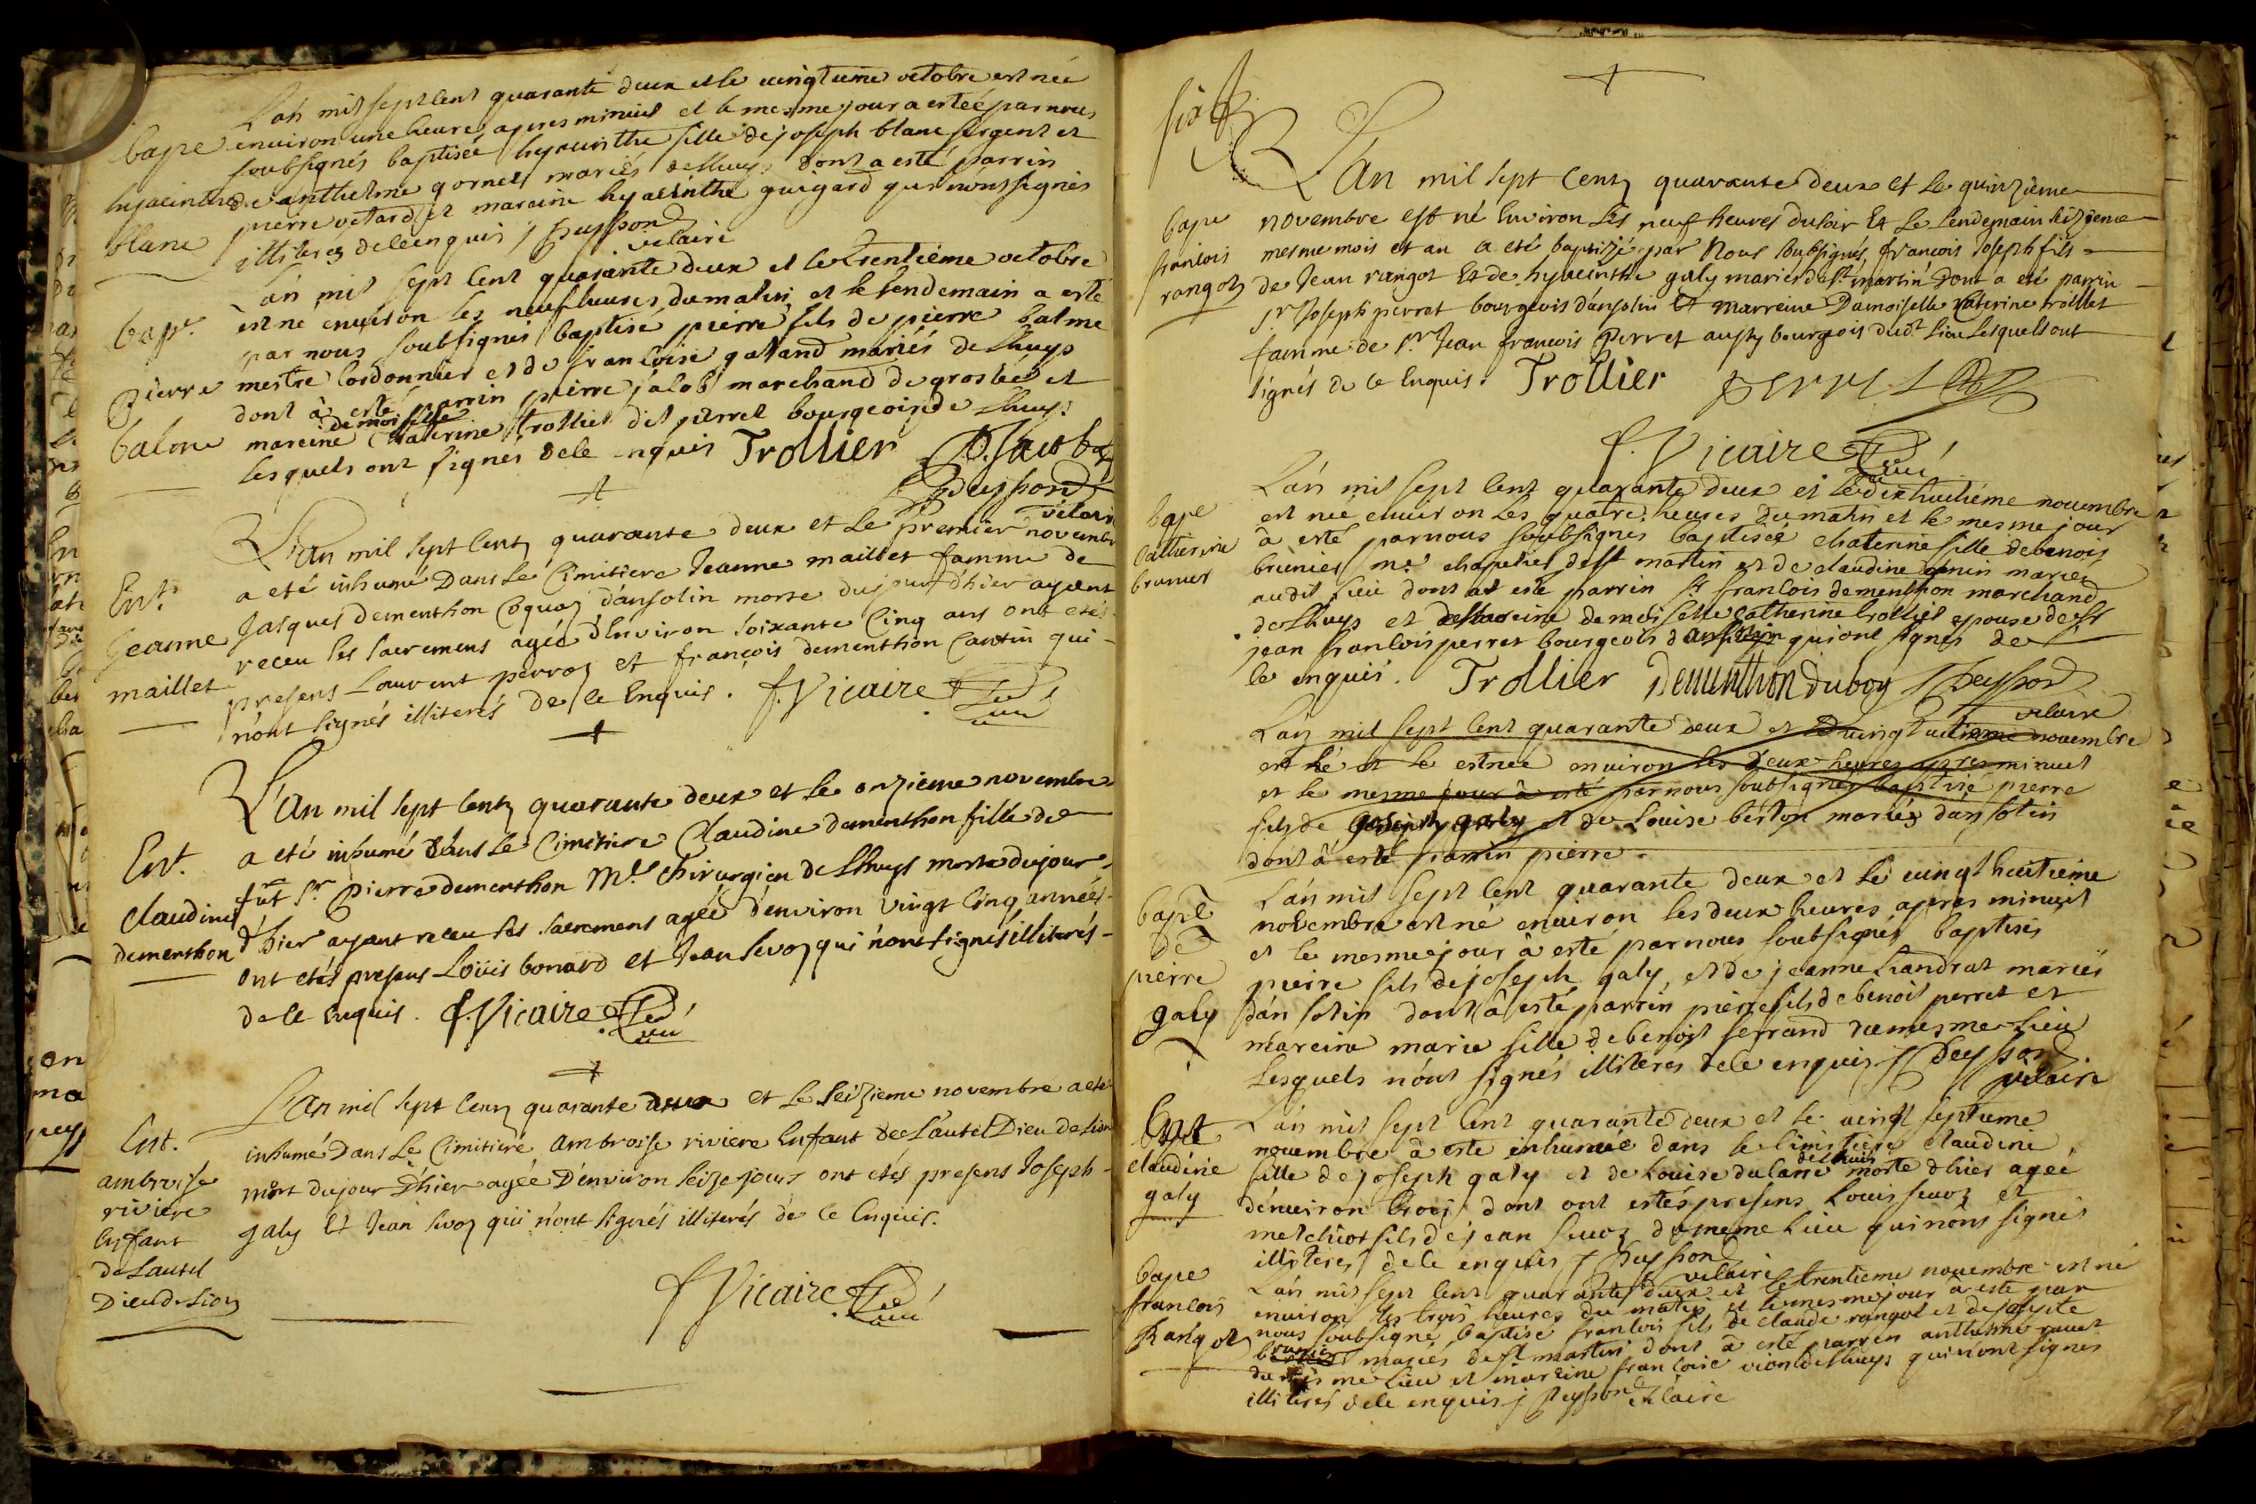 L'an mil sept cent quarante deux et le vingtieme octobre est née
environ une heure apres minuit et le mesme jour a estéé par nous
soubsignés baptisée hyacinthe fille de joseph blanc sergent et
de anthelme gornet mariés de lhuys dont a esté parrin
pierre vetard et mareine hyacinthe guigard qui n'ont signés
illiteres de ce enquis j peysson
vicaire
bape
hyacinthe
blanc
L'an mil sept cent quarante deux et le trentieme octobre
est né environ les neuf heures du matin et le lendemain a esté
par nous soubsignés baptisé pierre fils de pierre balme
mestre cordonnier et de francoise galland mariés de lhuys
dont à esté parrin pierre jacob marchand de groslée et
mareine demoiselle Catherine trollier dit perret bourgeois de lhuys
lesquels ont signés de ce enquis Trollier P. Jacob
j peysson
vicaire
bape
pierre
balme
L'an mil sept cent quarante deux et le premier novembre
a eté inhumé Dans Le Cimitiere Jeanne maillet famme de
Jacques dementhon Coquaz d'ansolin morte du jour d'hier ayant
receu les sacremens agée d'Environ soixante Cinq ans ont etés
presens Laurent perroz et françois dementhon Cantin qui
n'ont signés illiterés de ce Enquis. f. Vicaire
Ent.
Jeanne
maillet
L'an mil sept cent quarante deux et le onzieme novembre
a eté inhumé dans Le Cimitiere Claudine dementhon fille de
fut Sr Pierre dementhon Me Chirurgien de Lhuys morte du jour
d'hier ayant receu les sacremens agée d'environ vingt Cinq années
ont etés presens Loüis bonard et Jean sevoz qui n'ont signés illiterés
de ce Enquis. f. Vicaire
Ent.
Claudine
dementhon
L'an mil sept cent quarante deux et le seizieme novembre a eté
inhumé Dans Le Cimitiere ambroise riviere Enfant de L'autel Dieu de Lion
mort du jour D'hier agée D'environ seize jours ont etés presens Joseph
galy Et Jean sevoz qui n'ont signés illiterés de ce Enquis.
f Vicaire
Ent.
ambroise
riviere
Enfant
de Lautel
Dieu de Lion
six
L'an mil sept cent quarante deux et Le quinzieme
novembre est né Environ Les neuf heures du soir Et Le Lendemain seizieme
mesme mois et an a eté baptisé par Nous soubsignés françois Joseph fils
de Jean rangot Et de hyacinthe galy mariés de St martin Dont a eté parrin
Sr Joseph perrat bourgeois d'ansolin Et marreine Damoiselle Caterine trolliet
famme de Sr Jean françois Perret aussy bourgeois dudt Lieu Lesquels ont
signés de ce Enquis. Trollier perret
f. Vicaire
bape
francois
rangot
L'an mil sept cent quarante deux et le dix huitiéme novembre
est née environ les quatre heures du matin et le mesme jour
à esté par nous soubsignés baptisée chaterine fille de benoit
brunier me chapelier de st martin et de claudine genin mariés
audit lieu dont at esté parrin Sr francois dementhon marchand
de lhuys et mareine demoiselle Catherine trollier epouse de Sr
jean francois perret bourgeois d'ansolin qui ont signés de
ce enquis. Trollier Dementhon Duboy j Peysson
vicaire
bape
Catherine
brunier
L'an mil sept cent quarante deux et le vingt uitieme novembre
est né et le estneé environ les deux heures apres minuit
et le mesme jour à esté par nous soubsignés baptisé pierre
fils de joseph galy et de Louise berton mariés d'ansolin
dont à esté parrin pierre.
L'an mil sept cent quarante deux et le vingt huitieme
novembre est né environ les deux heures apres minuit
et le mesme jour à esté par nous soubsignés baptisés
pierre fils de joseph galy, et de jeanne handrat mariés
d'ansolin dont à esté parrin pierre fils de benoit perret et
mareine marie fille de benoit ferrand de mesme lieu
Lesquels n'ont signés illiteres de ce enquis j Peysson
vicaire
bape
de
pierre
galy
L'an mil sept cent quarante deux et le vingt septieme
novembre à este inhumée dans le cimitiere de lhuis claudine
fille de joseph galy et de Louise morte d'hier ageé
d'environ dont ont estés presens Louis sevoz et
melchiot fils de jean sevoz du meme lieu qui n'ont signés
illiteres de ce enquis j Peysson
vicaire
Ent
claudine
galy
L'an mil sept cent quarante deux et le trentieme novembre est né
environ les trois heures du matin et le mesme jour à este par
nous soubsigné baptise francois fils de claude rangot et de
mariés de st martin dont à esté parrin anthelme
du mesme lieu et mareine francoise vion de lhuys qui n'ont signes
illiterés de ce enquis j Peysson vicaire
bape
francois
Rangot